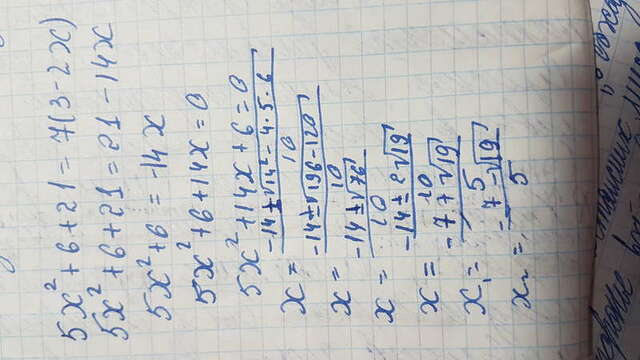 5x² + 6 + 21 = 7(3 - 2x)
5x² + 6 + 21 = 21 - 14x
5x² + 6 = -14x
5x² + 6 + 14x = 0
5x² + 14x + 6 = 0
x = (-14 ± √(14² - 4 · 5 · 6))/10
x = (-14 ± √(196 - 120))/10
x = (-14 ± √76)/10
x = (-14 ± 2√19)/10
x₁ = (-7 + √19)/5
x₂ = (-7 - √19)/5